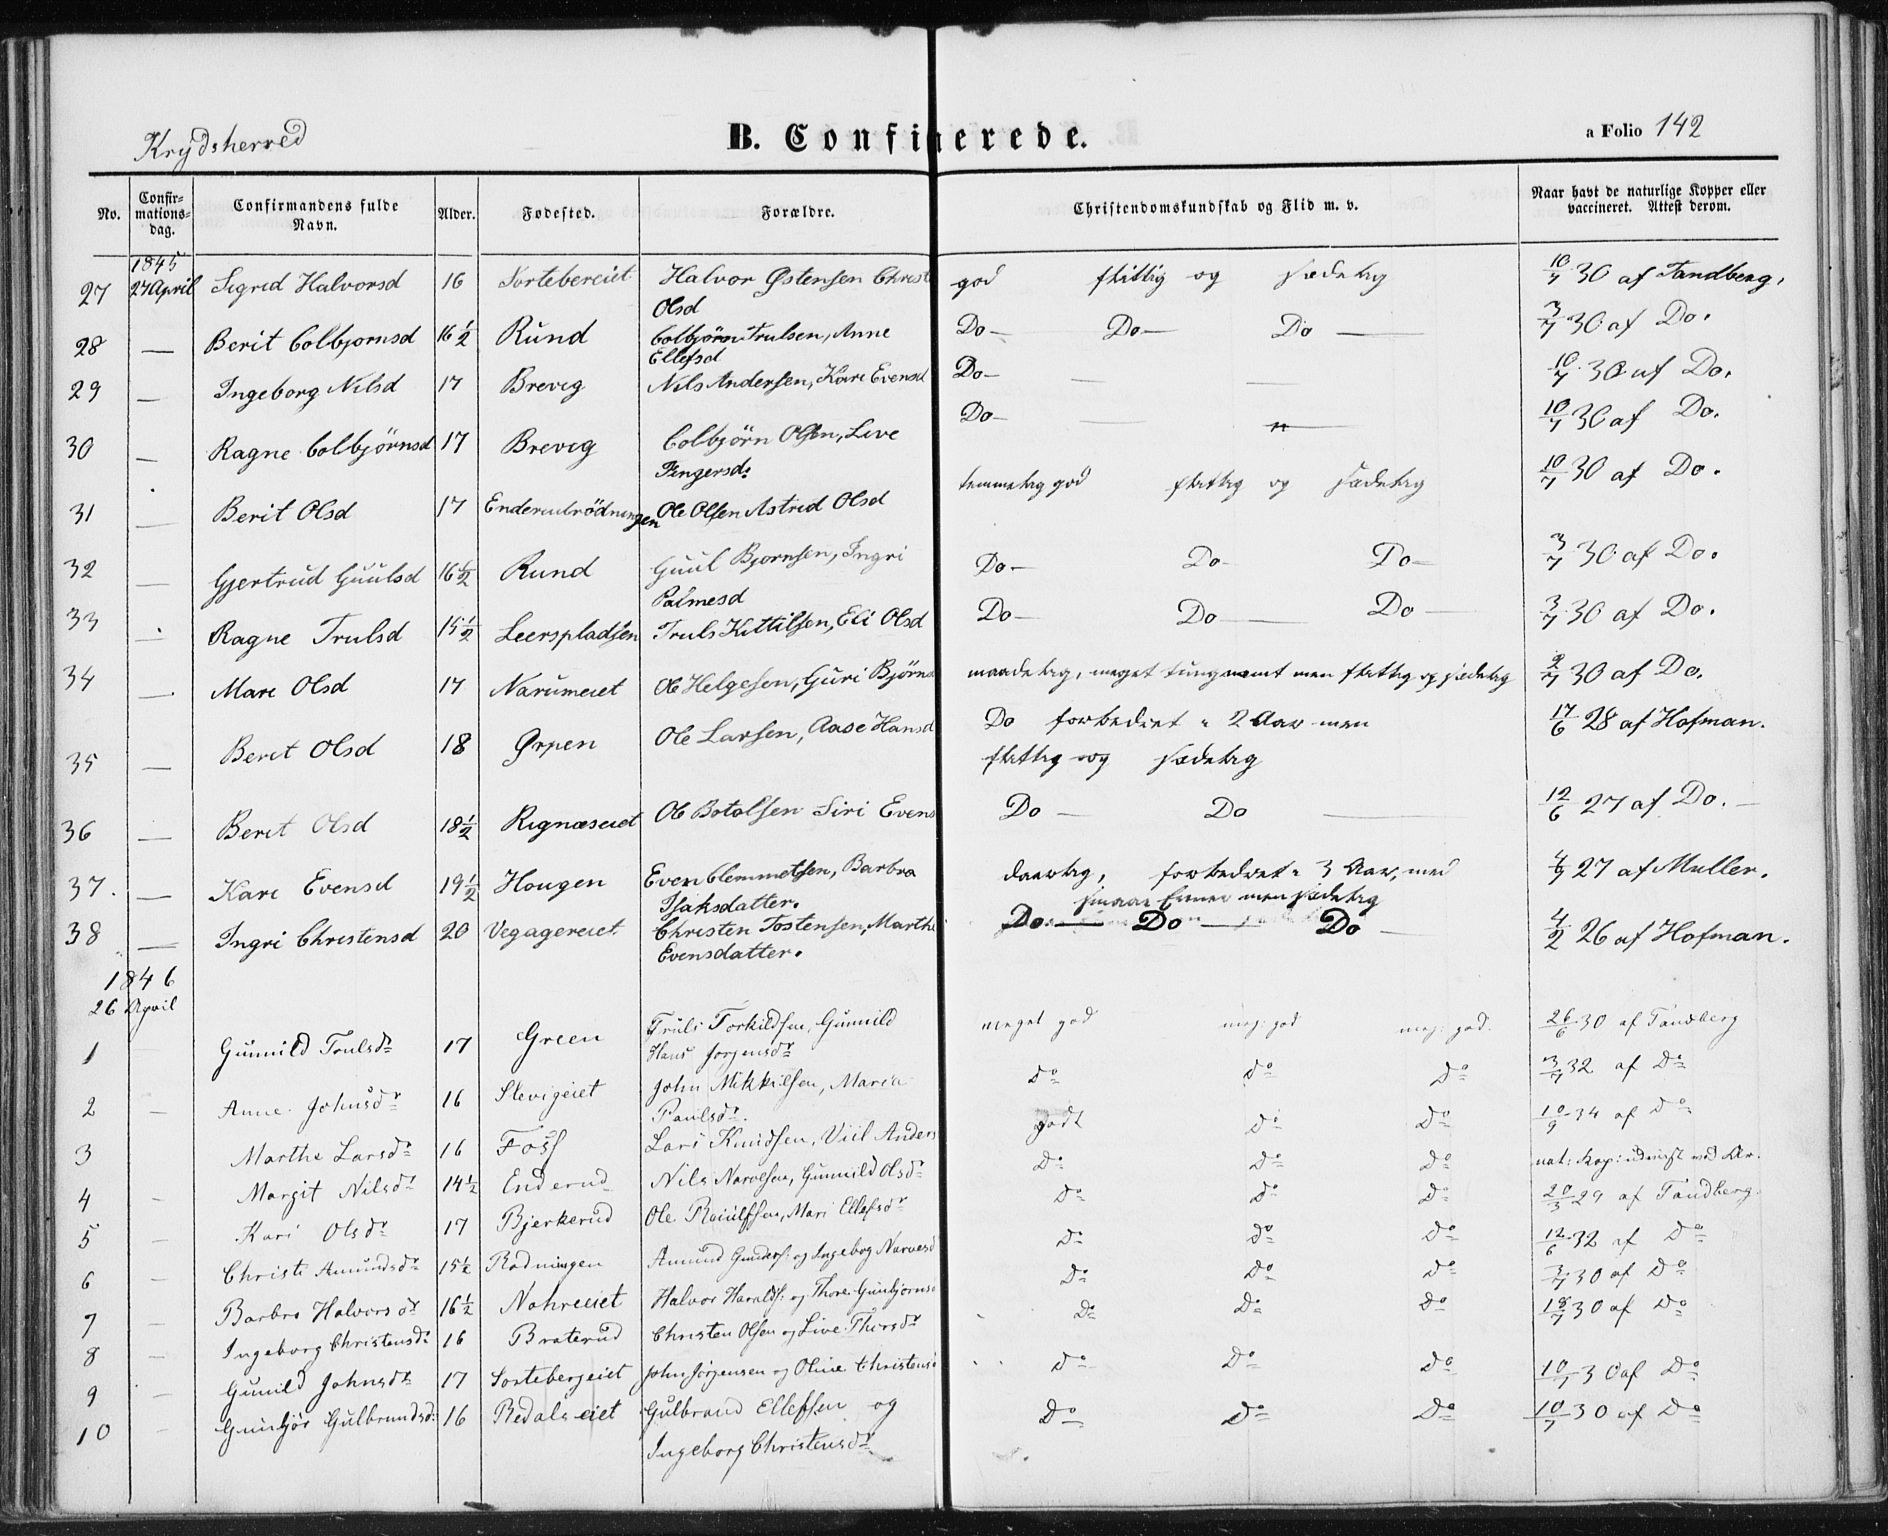 Krydsherred
B. Confirmerede.
a Folio 142
No. Confirmationsdag. Confirmandens fulde Navn. Alder. Fødested. Forældre. Christendomskundskab og Flid m. v. Naar havt de naturlige Kopper eller vaccineret. Attest derom.
1845
27 27 April Sigrid Halvorsd 16 Sortebereiet Halvor Østensen Christ god flittig og sædelig 10/7 30 af Tandberg.
Olsd
28 — Berit Colbjornsd 16 1/2 Rund Colbjörn Trulsen, Anne Do — Do — Do — 3/7 30 af Do.
Ellefsd
29 — Ingeborg Nilsd 17 Brevig Nils Andersen, Kari Evensd Do — — — 10/7 30 af Do.
30 — Ragne Colbjörnsd 17 Brevig Colbjörn Olsen, Live Do — — " — 10/7 30 af Do.
Fingersd:
31 — Berit Olsd 17 Enderudrödningen Ole Olsen Astrid Olsd temmelig god flittig og sædelig 10/7 30 af Do.
32 — Gjertrud Guulsd 16 1/2 Rund Guul Bjornsen, Ingri Do — Do — Do — 3/7 30 af Do.
Palmesd
33 — Ragne Trulsd 15 1/2 Leerspladsen Truls Kittilsen, Eli Olsd Do — Do — Do — 3/7 30 af Do.
34 — Mari Olsd 17 Narumeiet Ole Helgesen, Guri Bjørns maadelig, meget tungnemt men flittig og sædelig 2/7 30 af Do.
35 — Berit Olsd 18 Ørpen Ole Larsen, Aase Hansd Do forbedret i 2 Aar men 17/6 28 af Hofman.
flittig og sædelig
36 — Berit Olsd 18 1/2 Rignæseiet Ole Botolsen Siri Evens Do — Do — 12/6 27 af Do. —
37. — Kari Evensd 19 1/2 Hougen Even Clemmetsen, Barbra daarlig, forbedret i 3 Aar, med 4/9 27 af Muller.
Isaksdatter. smaae Evner men sædelig
38 — Ingri Christensd 20 Vegagereiet Christen Tostensen, Marthe Do — Do — Do — 4/2 26 af Hofman.
Evensdatter.
1846
26 April
1 Gunnild Trulsdr 17 Green Truls Torkildsen, Gunnild meget god meg: god meg: god. 26/6 30 af Tandberg
Hans Jorgensdr
2 — Anne Johnsdr 16 Slevigeiet John Mikkilsen, Maria Do Do Do 3/7 32 af Do
Paulsdr.
3 — Marthe Larsdr 16 Foss Lars Knudsen, Viil Anders godt Do Do 10/9 34 af Do
4 — Margit Nilsdr 14 1/2 Enderud Nils Narvesen, Gunnild Olsdr Do Do Do nat: Kop:
5 — Kari Olsdr 17 Bjerkerud Ole Mari Ellefsdr Do Do Do 20/5 29 af Tandberg.
6 — Christi Amundsdr 15 1/2 Rødningen Amund Gunders: og Ingebog Narvesd Do Do Do 12/6 32 af Do
7 — Barbro Halvorsdr 16 1/2 Nohreeiet Halvor Haralds: og Thore Gunbjornsd Do Do Do 3/7 30 af Do
8 — Ingeborg Christensdr 16 Braterud Christen Olsen og Live Thorsdr Do Do Do 18/7 30 af Do
9 — Gunild Johnsdr 17 Sortebergeiet John Jörgensen og Oline Christensd Do Do Do 10/7 30 af Do
10 — Gunbjör Gulbrandsdr 16 Redalseiet Gulbrand Ellefsen og Do Do Do 10/7 30 af Do
Ingeborg Christensdr